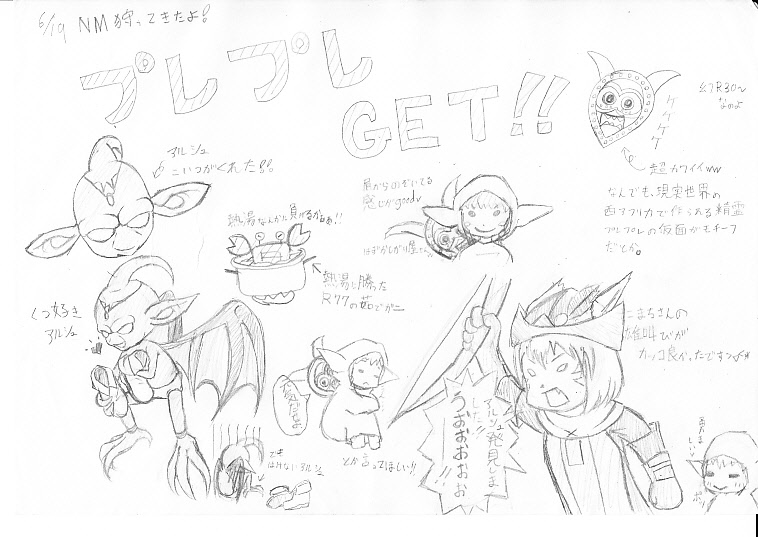 6/19 NM狩ってきたよ!
プレプレ
GET!!
幻R30〜
なのよ
ケケケケ
超カワイイww
なんでも、現実世界の
西アフリカで作られる精霊
プレプレの仮面がモチーフ
だとか。
アルシュ
こいつがくれた!!
肩からのぞいてる
感じがgood
熱湯なんかに負けるかぁぁ!!
熱湯に勝った
R77の茹でガニ
くつ好き
アルシュ
こまちさんの
雄叫びが
カッコ良かったですっ
アルシュ発見しま
した!!
うおおおおお
!!
とか言ってほしい!!
でも
はけないアルシュ
勇ましい
ポッ